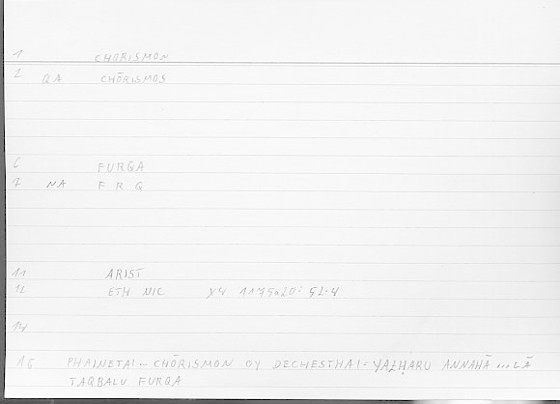 1 CHŌRISMON
2 QA CHŌRISMOS
6 FURQA
7 NA F R Q
11 ARIST
12 ETH NIC 1175a20: 52.4
14
16 PHAINETAI... CHŌRISMON OY DECHESTHAI = YAẒHARU ANNAHĀ ... LĀ
TAQBALU FURQA